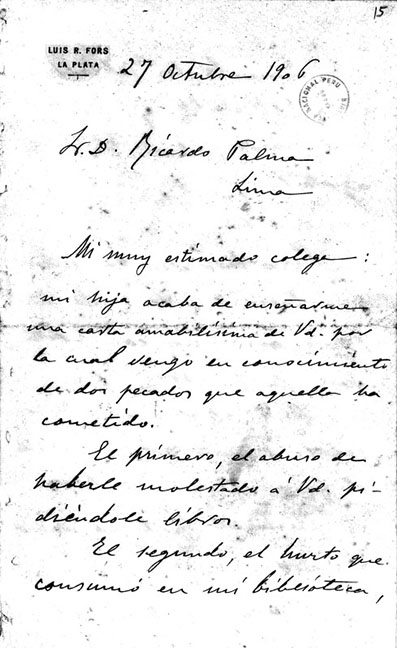 15
LUIS R. FORS
LA PLATA
27 Octubre 1906
NACIONAL PERU
Sr. D. Ricardo Palma
Lima
Mi muy estimado colega:
mi hija acaba de enseñarme
una carta amabilísima de Vd. por
la cual vengo en conocimiento
de dos pecados que aquella ha
cometido.
El primero, el abuso de
haberle molestado á Vd. pi-
diéndole libros.
El segundo, el hurto que
consumó en mi biblioteca,